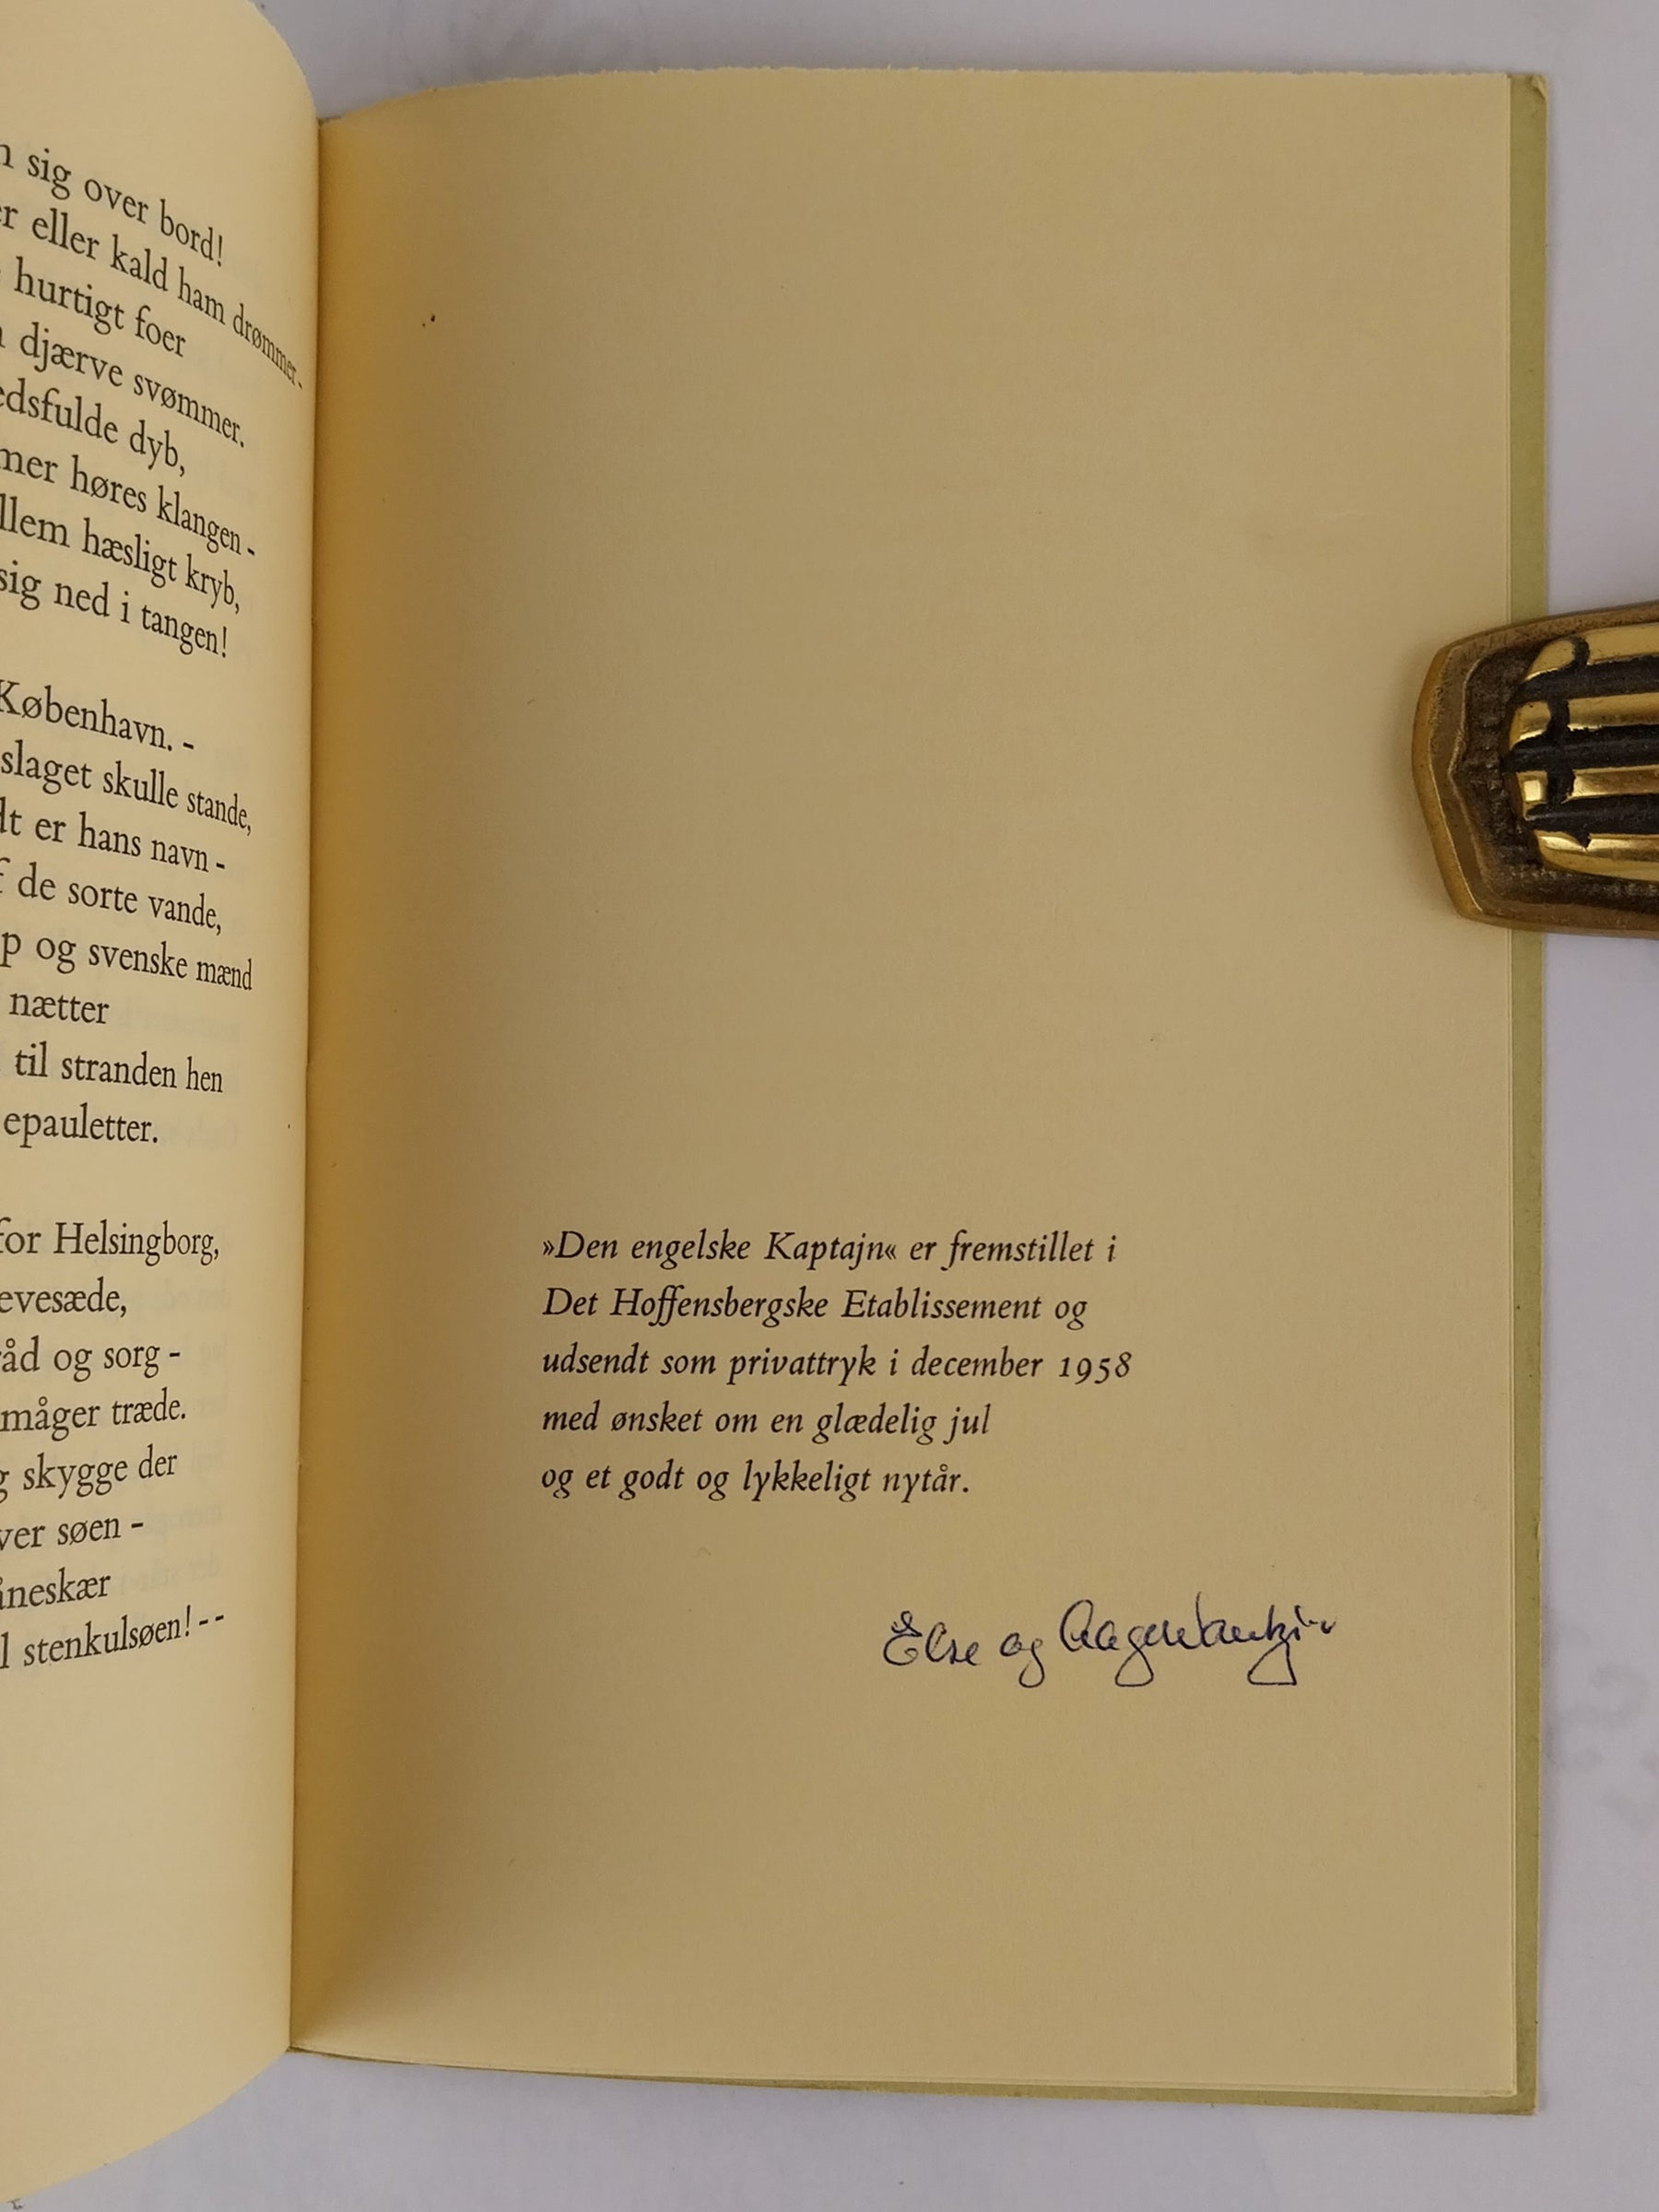 sig over bord!
eller kald ham drømmer -
hurtigt foer
djærve svømmer.
edsfulde dyb,
mer høres klangen -
llem hæsligt kryb,
sig ned i tangen!
København. -
slaget skulle stande,
dt er hans navn -
f de sorte vande,
p og svenske mænd
nætter
til stranden hen
epauletter.
for Helsingborg,
evesæde,
råd og sorg -
måger træde.
g skygge der
ver søen -
åneskær
l stenkulsøen! - -
»Den engelske Kaptajn« er fremstillet i
Det Hoffensbergske Etablissement og
udsendt som privattryk i december 1958
med ønsket om en glædelig jul
og et godt og lykkeligt nytår.
Else og Aage